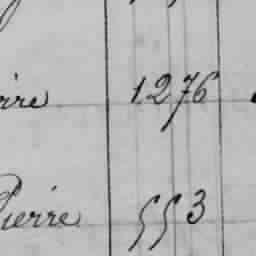 1276
Pierre 553